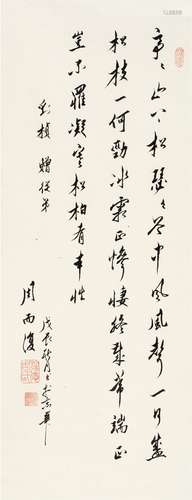 亭〻山上松瑟〻谷中風風聲一何盛
松枝一何勁冰霜正慘悽終歲常端正
豈不罹凝寒松柏有本性
劉楨 贈從弟
周而復
戊辰秋月於京華